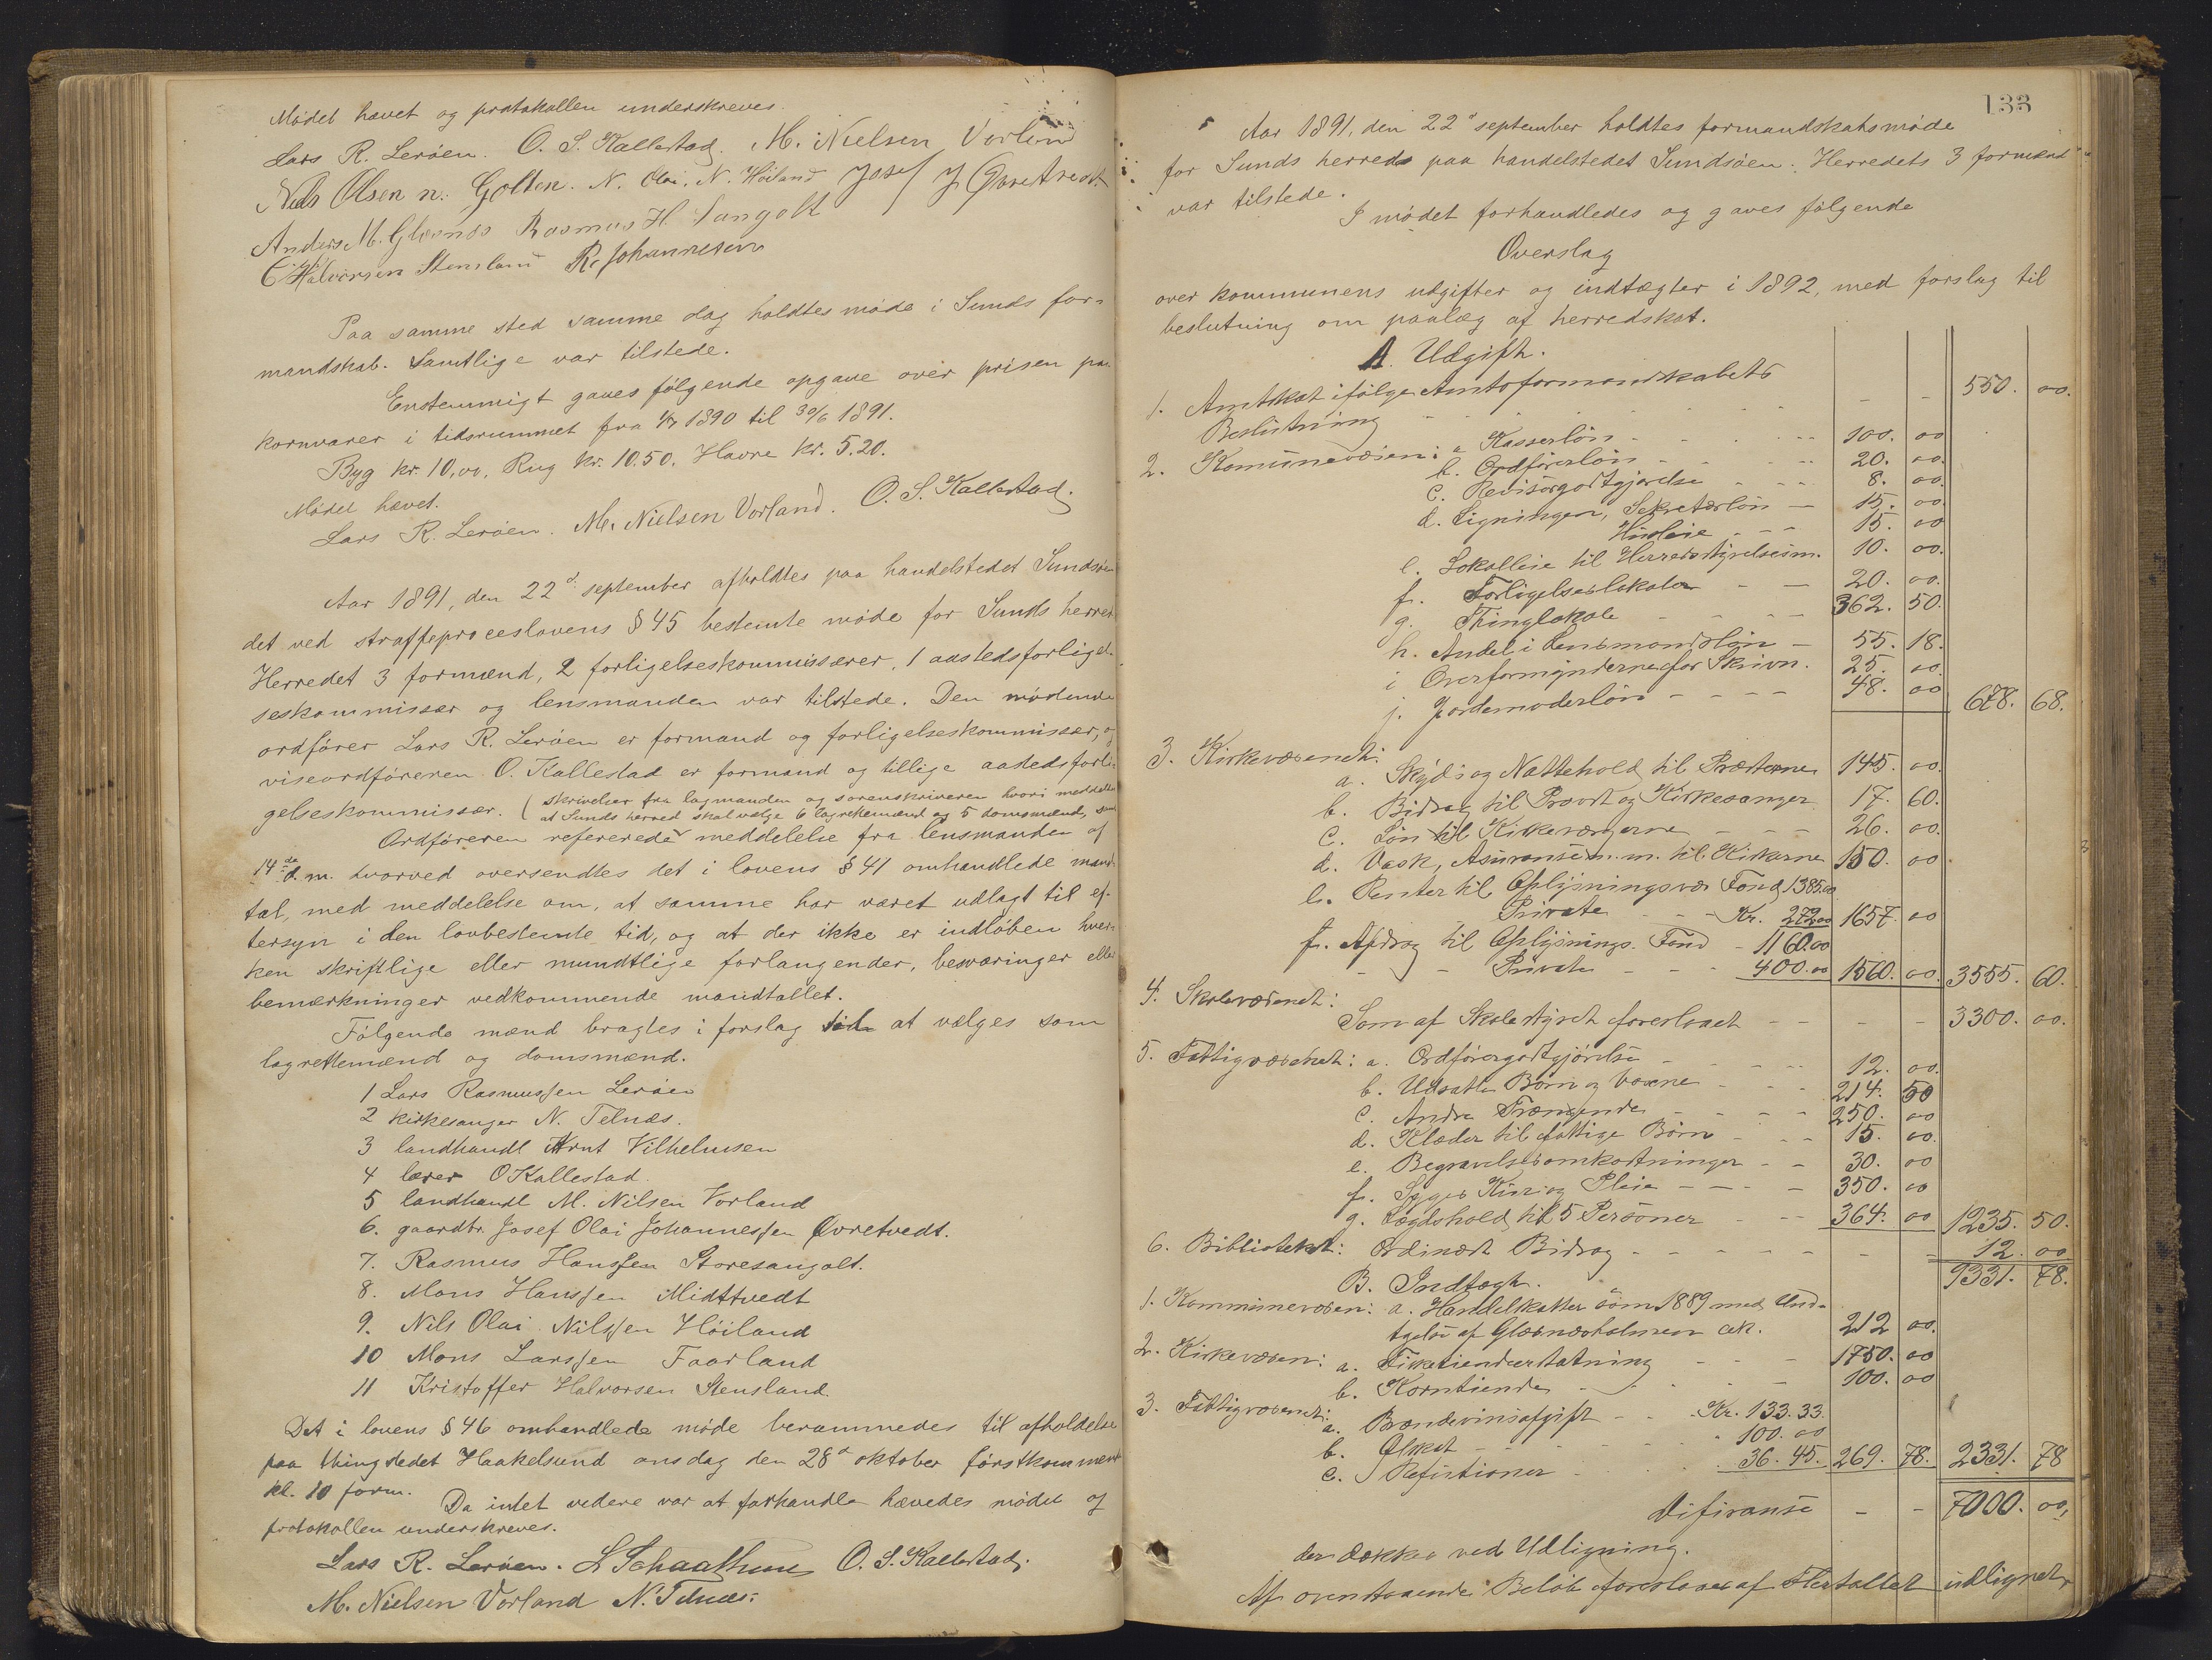 Mødet hævet og protokollen underskreves.
Lars R. Lerøen. O. S. Kallestad. M. Nielsen Vorland
Nils Olsen n. Golten. N. Olai. N. Höiland Josef J Øvretvedt
Anders M. Glesnes Rasmus H. Sangolt
C. Halvorsen Stensland R. Johannesen
Paa samme sted samme dag holdtes møde i Sunds for-
mandskab. Samtlige var tilstede.
Enstemmigt gaves følgende opgave over prisen paa
kornvarer i tidsrummet fra 1/7 1890 til 30/6 1891.
Byg kr. 10,00, Rug kr. 10.50. Havre kr. 5.20.
Mødet hævet.
Lars R. Lerøen. M. Nielsen Vorland. O. S. Kallestad.
Aar 1891, den 22d september afholdtes paa handelstedet Sundsøen
det ved straffeproceslovens § 45 bestemte møde for Sunds herred.
Herredet 3 formænd, 2 forligelseskommissærer, 1 aastedsforligel-
seskommissær og lensmanden var tilstede. Den mødende
ordfører Lars R. Lerøen er formand og forligelseskommissær, og
viseordføreren O. Kallestad er formand og tillige aastedsforli-
gelseskommissær. (skrivelser fra lagmanden og sorenskriveren hvori meddeles
at Sunds herred skal vælge 6 lagrettemænd og 5 domsmænd, samt
Ordføreren refererede meddelelse fra lensmanden af
14de d. m. hvorved oversendtes det i lovens § 41 omhandlede mand-
tal, med meddelelse om, at samme har været udlagt til ef-
tersyn i den lovbestemte tid, og at der ikke er indløben hver-
ken skriftlige eller mundtlige forlangender, besværinger eller
bemærkninger vedkommende mandtallet.
Følgende mænd bragtes i forslag til at vælges som
lagrettemænd og domsmænd.
1 Lars Rasmussen Lerøen
2 kirkesanger N. Telnæs.
3 landhandl Arnt Vilhelmsen
4 lærer O Kallestad.
5 landhandl M. Nilsen Vorland
6. gaardbr. Josef Olai Johannessen Øvretvedt.
7. Rasmus Hanssen Storesangolt.
8. Mons Hanssen Midttvedt
9. Nils Olai Nilssen Höiland
10 Mons Larssen Faarland
11 Kristoffer Halvorsen Stensland.
Det i lovens § 46 omhandlede møde berammedes til afholdelse
paa thingstedet Haakelsund onsdag den 28d oktober førstkommende
kl. 10 form.
Da intet videre var at forhandle hævedes mødet og
protokollen underskreves.
Lars R. Lerøen. L Schaathun O. S. Kallestad.
M. Nielsen Vorland N. Telnæs.
133
Aar 1891, den 22d september holdtes formandskabsmøde
for Sunds herred paa handelstedet Sundsøen. Herredets 3 formænd
var tilstede.
I mødet forhandledes og gaves følgende
Overslag
over kommunens udgifter og indtægter i 1892, med forslag til
beslutning om paalæg af herredskat.
A. Udgift.
1. Amtskat ifølge Amtsformandskabets
Beslutning - - 550. 00.
2. Komunevæsen: a Kasserløn - 100. 00
b. Ordførerløn - 20. 00.
c. Revisorgodtgjørelse - 8. 00.
d. Ligningen, Sekretærløn - 15. 00.
Husleie - - 15. 00
e. Lokalleie til Herredsstyrelsesm. 10. 00.
f. Forligelseslokaler - - 20. 00.
g. Thinglokale - 362. 50.
h. Andel i Lensmandsløn - 55. 18.
i Overformynderne for Skrivn. 25. 00.
j. Jordemoderløn - - - - 48. 00 678. 68.
3. Kirkevæsenet:
a. Skyds og Nattehold til Præsterne 145. 00.
b. Bidrag til Provst og Kirkesanger 17. 60.
c. Løn til Kirkeværgerne - - - 26. 00.
d. Vask, Asuranse m. m. til Kirkerne 150. 00
e. Renter til Oplysningsvæs Fond 1385.00
Private - - - Kr. 272.00 1657. 00
f. Afdrag til Oplysnings. Fond - 1160.00
- - Private - - - 400.00 1560. 00. 3555. 60.
4. Skolevæsenet:
Som af Skolestyret foreslaaet - - - - 3300. 00.
5. Fattigvæsenet: a. Ordførergodtgjørelse - 12. 00.
b. Udsatte Børn og Voxne - - - 214. 50
c. Andre Trængende - - - - 250. 00
d. Klæder til fattige Børn - - - 15. 00.
e. Begravelsesomkostninger - - 30. 00
f. Syges Kur og Pleie - - - - 350. 00
g. Lægdshold til 5 Personer - - 364. 00 1235. 50.
6. Biblioteket: Ordinært Bidrag - - - - - - - 12. 00
9331. 78.
B. Indtægt.
1. Kommunevæsen: a. Handelskatter som 1889 med Und-
tgelse af Glæsnæsholmen ck. 212 00.
2. Kirkevæsen: a. Fisketiendeerstatning - - - 1750. 00
b. Korntiende - - - - 100. 00
3. Fattigvæsenet:
a. Brændevinsafgift - - Kr. 133.33.
b. Ølskat - - - - - " 100.00
c. Refusioner - - - 36.45. 269. 78. 2331. 78
Difiranse - - 7000. 00,
der dækkes ved Udligning.
Af ovenstaaende Beløb foreslaaes af Flertallet udlignet